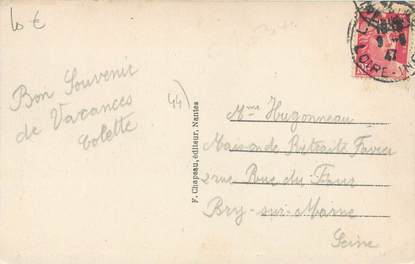 10 €
Bon Souvenir
de Vacances
Colette
44
F. Chapeau, éditeur, Nantes
Mme Hugonneau
Maison de Retraite Favier
2 rue Rue du Four
Bry-sur-Marne
Seine